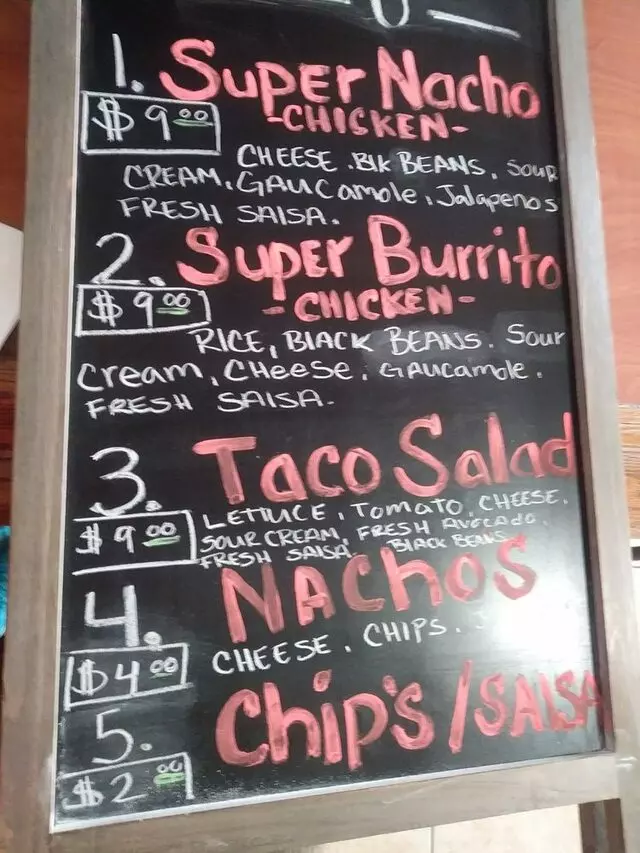 1. Super Nacho
$9.00 -CHICKEN-
CHEESE. BLK BEANS, SOUR
CREAM, GAUCamole, Jalapenos
FRESH SALSA.
2. Super Burrito
$9.00 -CHICKEN-
RICE, BLACK BEANS. Sour
Cream, CHeeSe, GAUCamole.
FRESH SALSA.
3. Taco Salad
$9.00 LETTUCE, Tomato, CHEESE,
SOUR CREAM, FRESH Avocado,
FRESH SALSA. BLACK BEANS
4. NACHOS
$4.00 CHEESE. CHIPS.
5. Chip's/SALSA
$2.00